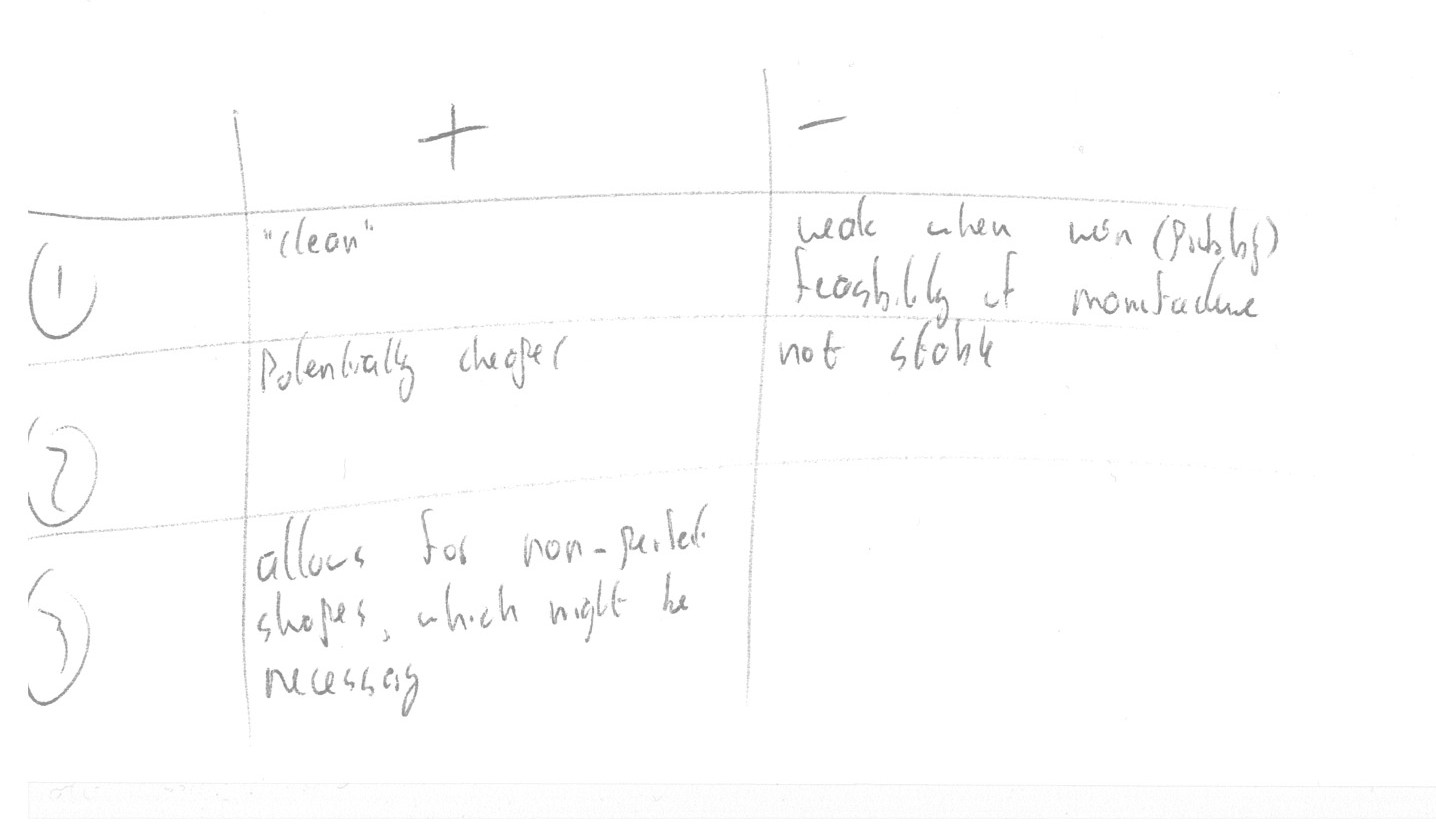 + -
1 "clean" weak when worn (Probably)
feasibility of manufacture
Potentially cheaper not stable
2
3 allows for non-perfect
shapes, which might be
necessary